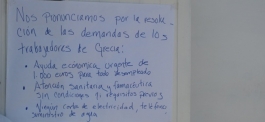 Nos pronunciamos por la resolu-
ción de las demandas de los
trabajadores de Grecia:
• Ayuda económica urgente de
1.000 euros para todo desempleado
• Atención sanitaria y farmacéutica
sin condiciones ni requisitos previos
• Ningún corte de electricidad, teléfono
suministro de agua